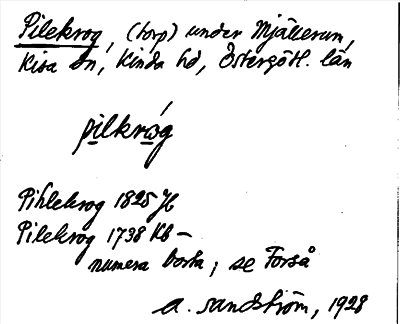 Pilekrog, (torp) under Mjällerum,
Kisa sn, Kinda hd, Östergötl. län
pilkróg
Pihlekrog 1825 JK
Pilekrog 1738 Kb –
numera borta; se Forså
A. Sandström, 1928